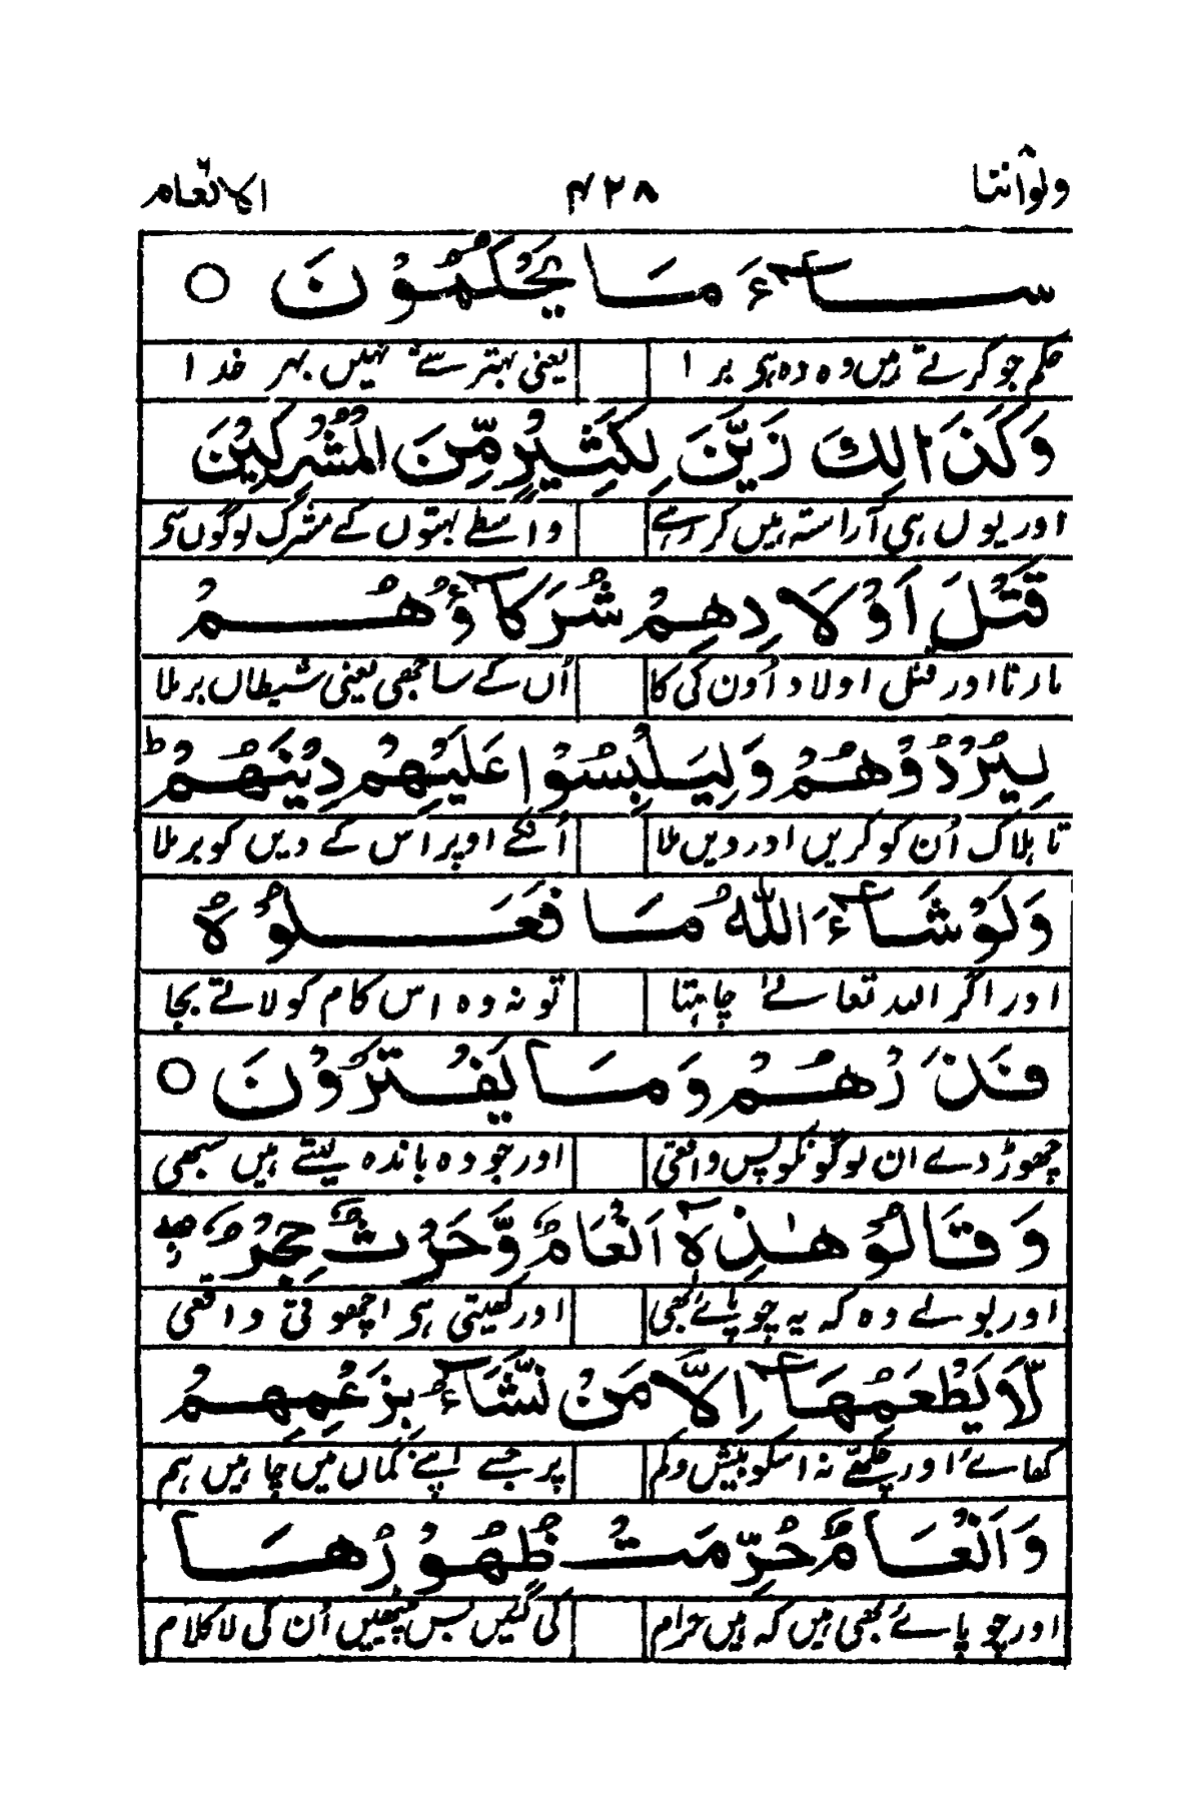 ولوأننا ۴۲۸ الانعام
سَآءَ مَا يَحْكُمُوْنَ ○
حکم جو کرتے ہیں وہ وہ ہی برا یعنی بہتر سے نہیں بہر خدا
وَكَذَالِكَ زَيَّنَ لِكَثِيْرٍ مِّنَ الْمُشْرِكِيْنَ
اور یوں ہی آراستہ ہیں کر رہے واسطے بہتوں کے مشرک لوگوں سے
قَتْلَ اَوْلَادِهِمْ شُرَكَآؤُهُمْ
مارنا اور قتل اولاد اُون کی کا اُں کے ساجھی یعنی شیطاں برملا
لِيُرْدُوْهُمْ وَلِيَلْبِسُوْا عَلَيْهِمْ دِيْنَهُمْ ؕ
تا ہلاک اُن کو کریں اور دیں ملا اُنکے اوپر اس کے دیں کو برملا
وَلَوْ شَآءَ اللّٰهُ مَا فَعَلُوْهُ
اور اگر اللہ تعالےٰ چاہتا تو نہ وہ اس کام کو لاتے بجا
فَذَرْهُمْ وَمَا يَفْتَرُوْنَ ○
چھوڑ دے ان لوگونکو پس واقعی اور جو وہ باندہ لیتے ہیں سبھی
وَقَالُوْا هٰذِهٖٓ اَنْعَامٌ وَّحَرْثٌ حِجْرٌ ۖ
اور بولے وہ کہ یہ چوپائے بھی اور کھیتی ہی اچھوتی واقعی
لَّا يَطْعَمُهَآ اِلَّا مَنْ نَّشَآءُ بِزَعْمِهِمْ
کھائے اور چکھے نہ اسکو بیش و کم پر جسے اپنے گماں میں چاہیں ہم
وَاَنْعَامٌ حُرِّمَتْ ظُهُوْرُهَا
اور چوپائے بھی ہیں کہ ہیں حرام کی گئیں بس پیٹھیں اُن کی لاکلام